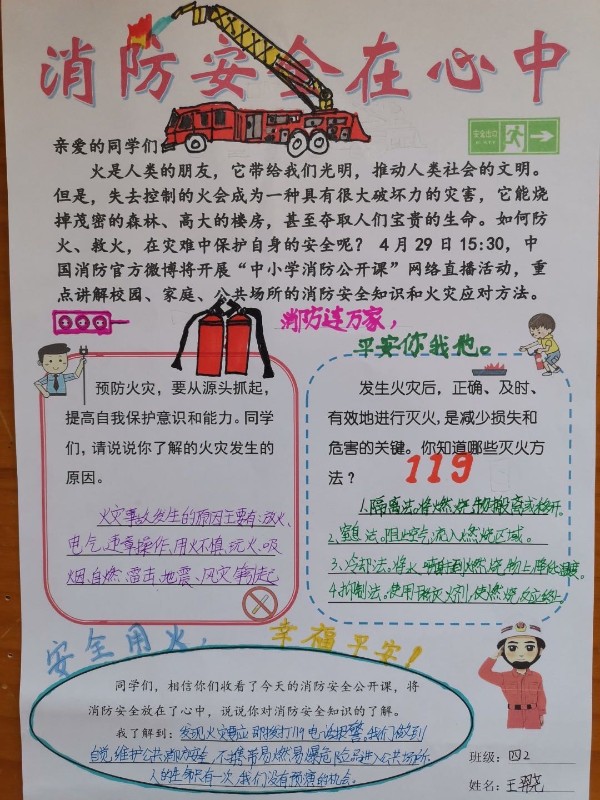 消防安全在心中
亲爱的同学们
安全出口
火是人类的朋友，它带给我们光明，推动人类社会的文明。
但是，失去控制的火会成为一种具有很大破坏力的灾害，它能烧
掉茂密的森林、高大的楼房，甚至夺取人们宝贵的生命。如何防
火、救火，在灾难中保护自身的安全呢？ 4月29日15:30，中
国消防官方微博将开展“中小学消防公开课”网络直播活动，重
点讲解校园、家庭、公共场所的消防安全知识和火灾应对方法。
消防连万家，
平安你我他。
预防火灾，要从源头抓起，
提高自我保护意识和能力。同学
们，请说说你了解的火灾发生的
原因。
火灾事故发生的原因主要有:放火、
电气、违章操作、用火不慎、玩火、吸
烟、自燃、雷击、地震、风灾等引起
发生火灾后，正确、及时、
有效地进行灭火，是减少损失和
危害的关键。你知道哪些灭火方
法？
119
1.隔离法。将燃烧物搬离或移开。
2、窒息法。阻止空气流入燃烧区域。
3、冷却法。将水喷射到燃烧物上降低温度。
4.抑制法。使用灭火剂，使燃烧反应终止
安全用火，
幸福平安！
同学们，相信你们收看了今天的消防安全公开课，将
消防安全放在了心中，说说你对消防安全知识的了解。
我了解到：发现火灾要立即拨打119电话报警。我们做到
自觉维护公共消防安全，不携带易燃易爆危险品进入公共场所
人的生命只有一次，我们没有预演的机会。
班级：四2
姓名：王